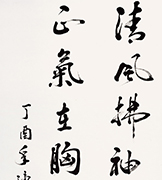 清風拂袖
正氣在胸
丁酉年